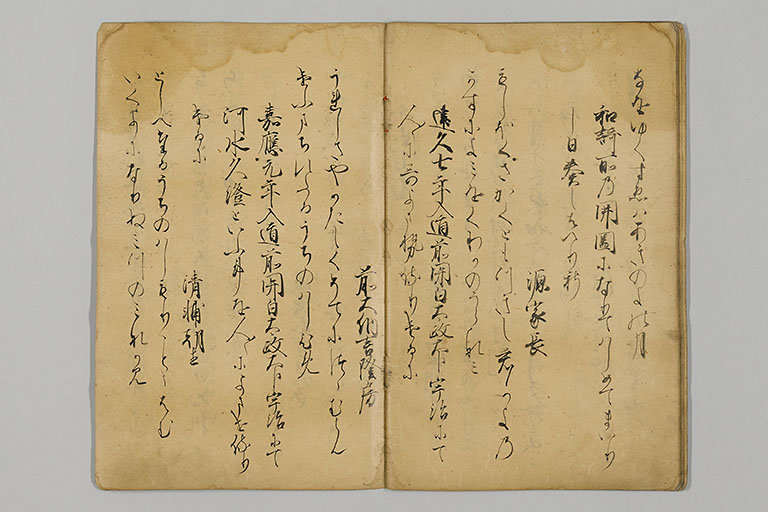 なをゆくすゑはあきのよの月
和謌所乃開闔になりてはしめてまいり
し日奏し侍りし
源家長
もしほくさかくともつきし君かよの
かすによみをくわかのうらなみ
建久七年入道前関白太政大臣宇治にて
人に哥よませ侍りけるに
前大納言隆房
うれしさやかたしくそてにつゝむらん
けふまちえたるうちのはしひめ
嘉應元年入道前関白太政大臣宇治にて
河水久澄といふ事を人によませ侍り
けるに
清輔朝臣
としへたるうちのはしもりことゝはむ
いくよになりぬみつのみなかみ